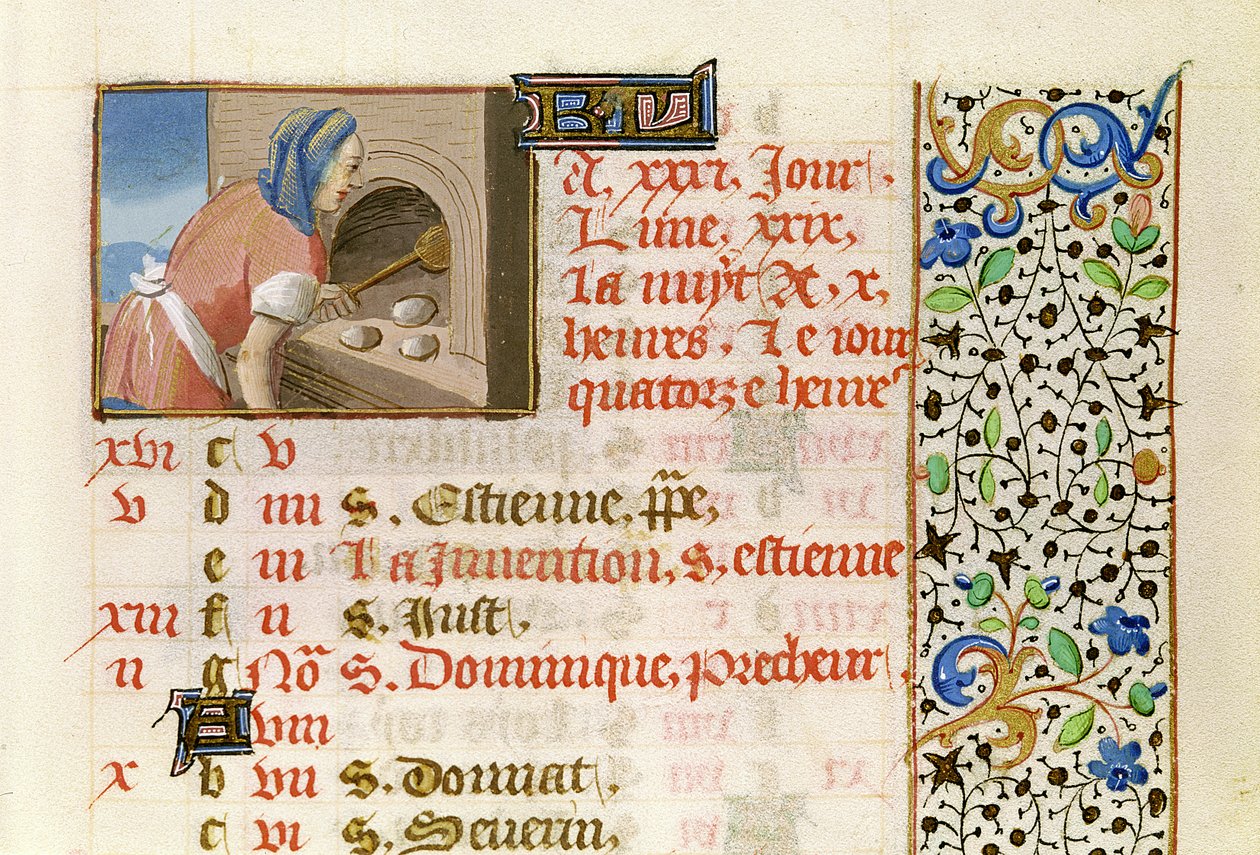 KL
A, xxxi, Jour,
Lune, xxix,
La nuyt A, x,
heures. Le iour
quatorze heure
xvi c v
v d iiii S. Estienne, ppe,
e iii La Inuention, s, estienne
xiii f ii S. Iust,
ii g No S. Dominique, precheur,
A viii
x b vii S. Donnat,
c vi S. Seuerin,